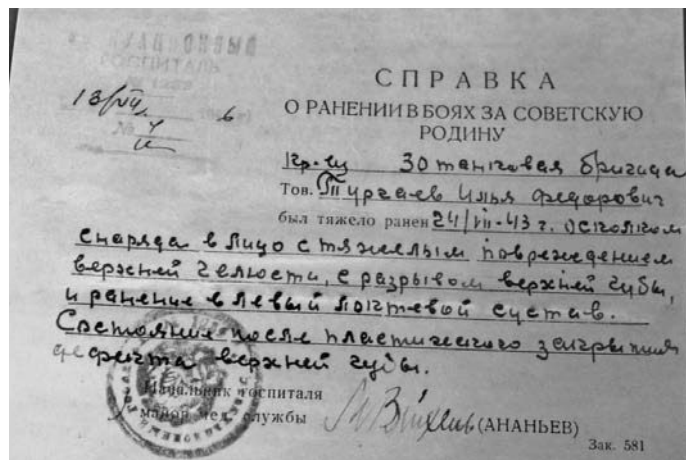 ГОСПИТАЛЬ
18/VII
6
№ 4
СПРАВКА
О РАНЕНИИ В БОЯХ ЗА СОВЕТСКУЮ
РОДИНУ
Кр-ец 30 танковая бригада
Тов. Тургаев Илья Федорович
был тяжело ранен 24/VII-43 г. осколком
снаряда в лицо с тяжелым повреждением
верхней челюсти, с разрывом верхней губы,
и ранение в левый локтевой сустав.
Состояние после пластического закрытия
дефекта верхней губы.
Начальник госпиталя
майор мед. службы (АНАНЬЕВ)
Зак. 581